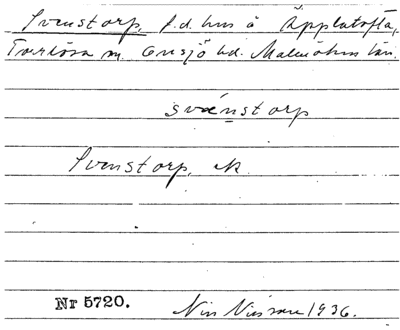 Svenstorp f.d. hus å Äpplatofta,
Torrlösa sn. Onsjö hd. Malmöhus län.
svenstorp
Svenstorp, ek
Nr 5720.
Nils Nilsson 1936.